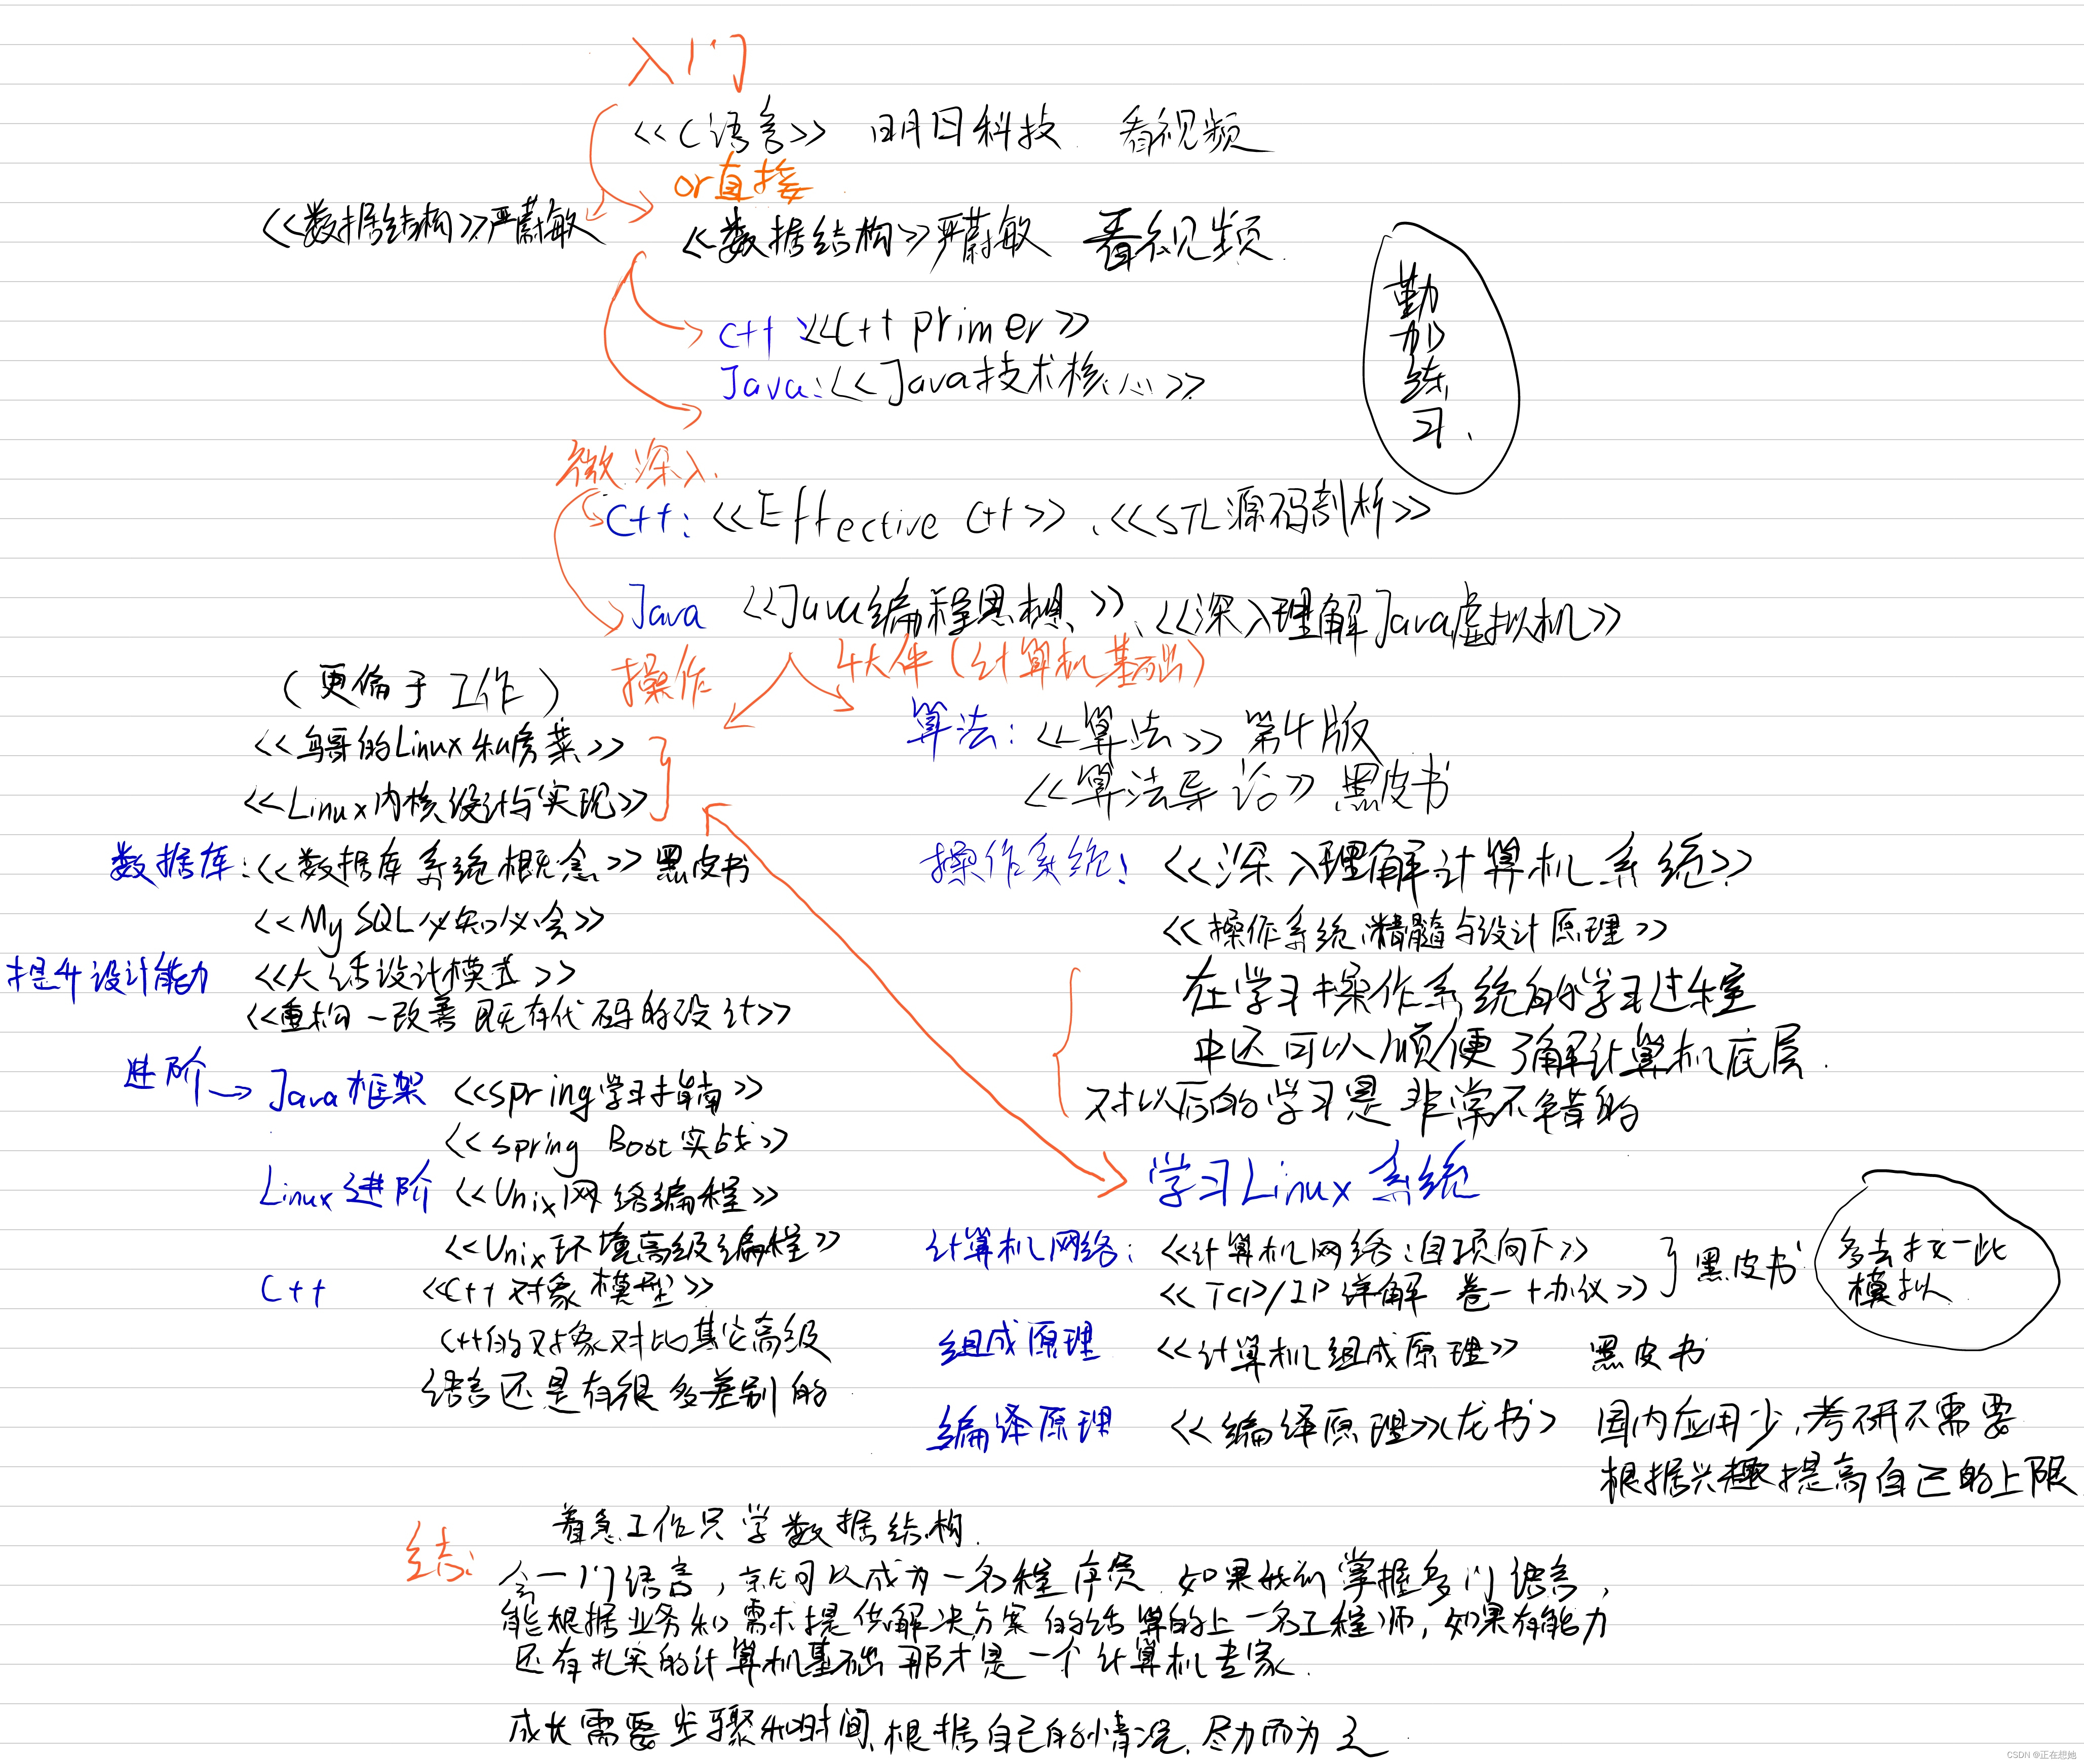 入门
<<C语言>> 明日科技 看视频
or直接
<<数据结构>>严蔚敏
<<数据结构>>严蔚敏 看视频
C++:<<C++ primer>>
Java:<<Java技术核心>>
勤
加
练
习.
微深入.
C++: <<Effective C++>>、<<STL源码剖析>>
Java <<Java编程思想>>、<<深入理解Java虚拟机>>
操作
(更偏于工作)
<<鸟哥的Linux私房菜>>
<<Linux内核设计与实现>>
数据库:<<数据库系统概念>>黑皮书
<<MySQL必知必会>>
提升设计能力 <<大话设计模式>>
<<重构一改善既有代码的设计>>
进阶→Java框架 <<spring学习指南>>
<<spring Boot实战>>
Linux进阶 <<Unix网络编程>>
<<Unix环境高级编程>>
C++ <<C++对象模型>>
C++的对象对比其它高级
语言还是有很多差别的
4大件(计算机基础)
算法:<<算法>> 第4版
<<算法导论>> 黑皮书
操作系统: <<深入理解计算机系统>>
<<操作系统精髓与设计原理>>
在学习操作系统的学习过程
中还可以顺便了解计算机底层.
对以后的学习是非常不错的
学习Linux系统
计算机网络: <<计算机网络:自顶向下>>
<<TCP/IP详解 卷一 协议>>
黑皮书
多去找一些
模拟
组成原理 <<计算机组成原理>> 黑皮书
编译原理 <<编译原理>>(龙书) 国内应用少,考研不需要
根据兴趣提高自己的上限
结:
着急工作只学数据结构.
会一门语言,就可以成为一名程序员.如果我们掌握多门语言,
能根据业务和需求提供解决方案的话算的上一名工程师,如果有能力
还有扎实的计算机基础那才是一个计算机专家.
成长需要步骤和时间,根据自己的情况,尽力而为之
CSDN @正在想她